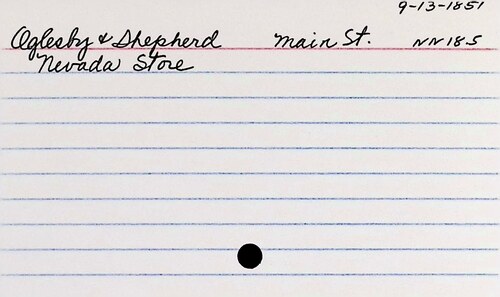 9-13-1851
Oglesby & Shepherd Main St. NN 18.5
Nevada Store